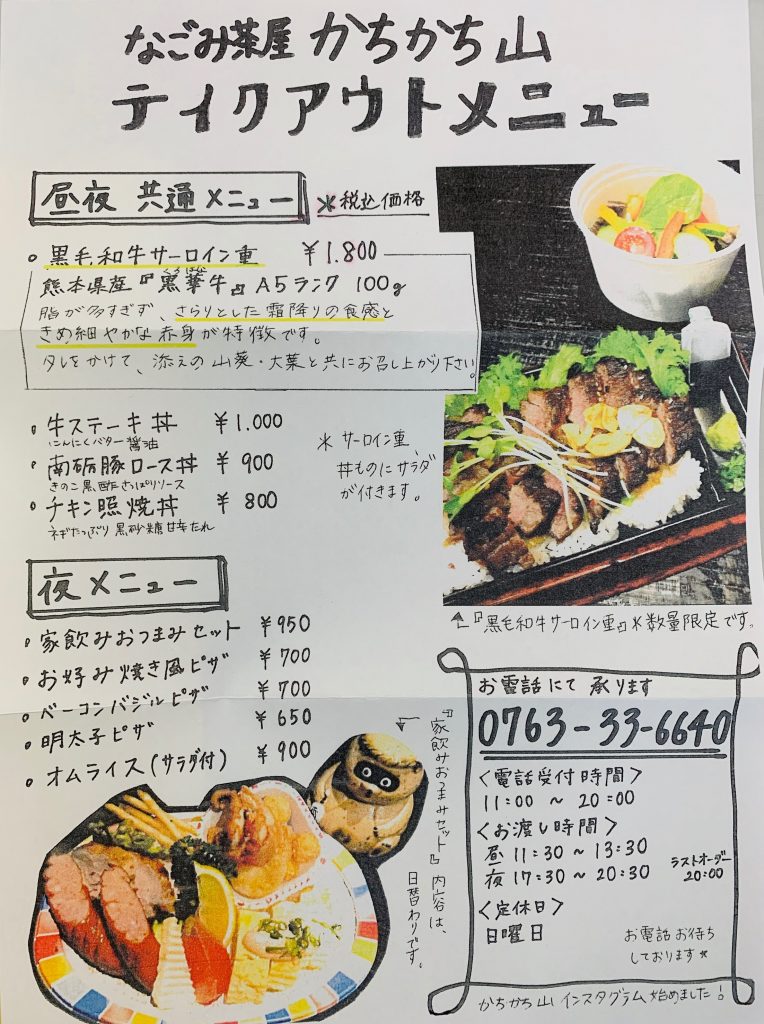 なごみ茶屋 かちかち山
テイクアウトメニュー
昼夜 共通メニュー
＊税込価格
◦ 黒毛和牛サーロイン重 ￥1.800
熊本県産『黒華牛』 A5ランク 100g
脂が多すぎず、さらりとした霜降りの食感と
きめ細やかな赤身が特徴です。
タレをかけて、添えの山葵・大葉と共にお召し上がり下さい。
・牛ステーキ丼 ￥1.000
にんにくバター醤油
・南砺豚ロース丼 ￥900
きのこ黒酢さっぱりソース
・チキン照焼丼 ￥800
ネギたっぷり黒砂糖甘辛たれ
＊サーロイン重、
丼ものにサラダ
が付きます。
『黒毛和牛サーロイン重』＊数量限定です。
夜メニュー
・家飲みおつまみセット ￥950
・お好み焼き風ピザ ￥700
・ベーコンバジルピザ ￥700
・明太子ピザ ￥650
・オムライス(サラダ付) ￥900
『家飲みおつまみセット』内容は、
日替わりです。
お電話にて承ります
0763-33-6640
〈電話受付時間〉
11:00 ～ 20:00
〈お渡し時間〉
昼 11:30 ～ 13:30
夜 17:30 ～ 20:30
ラストオーダー
20:00
〈定休日〉
日曜日
お電話お待ち
しております＊
かちかち山インスタグラム始めました！